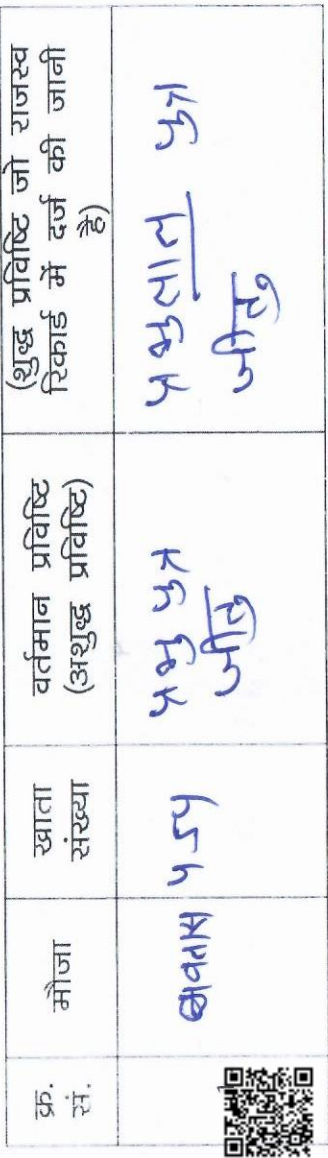 क्र.
सं.
मौजा
खाता
संख्या
वर्तमान प्रविष्टि
(अशुद्ध प्रविष्टि)
(शुद्ध प्रविष्टि जो राजस्व
रिकार्ड में दर्ज की जानी
है)
प्रभु पुत्र
जीतु
प्रभुलाल पुत्र
जीतु